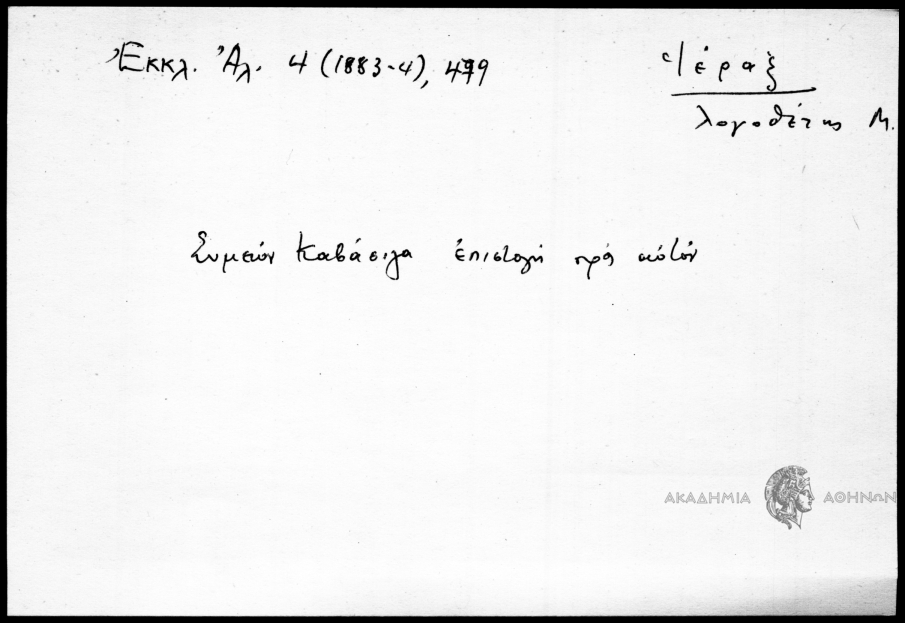 Ἐκκλ. Ἀλ. 4 (1883-4), 479
Ἱέραξ
λογοθέτης Μ.
Συμεών Καβάσιλα ἐπιστολή πρός αὐτόν
ΑΚΑΔΗΜΙΑ ΑΘΗΝΩΝ